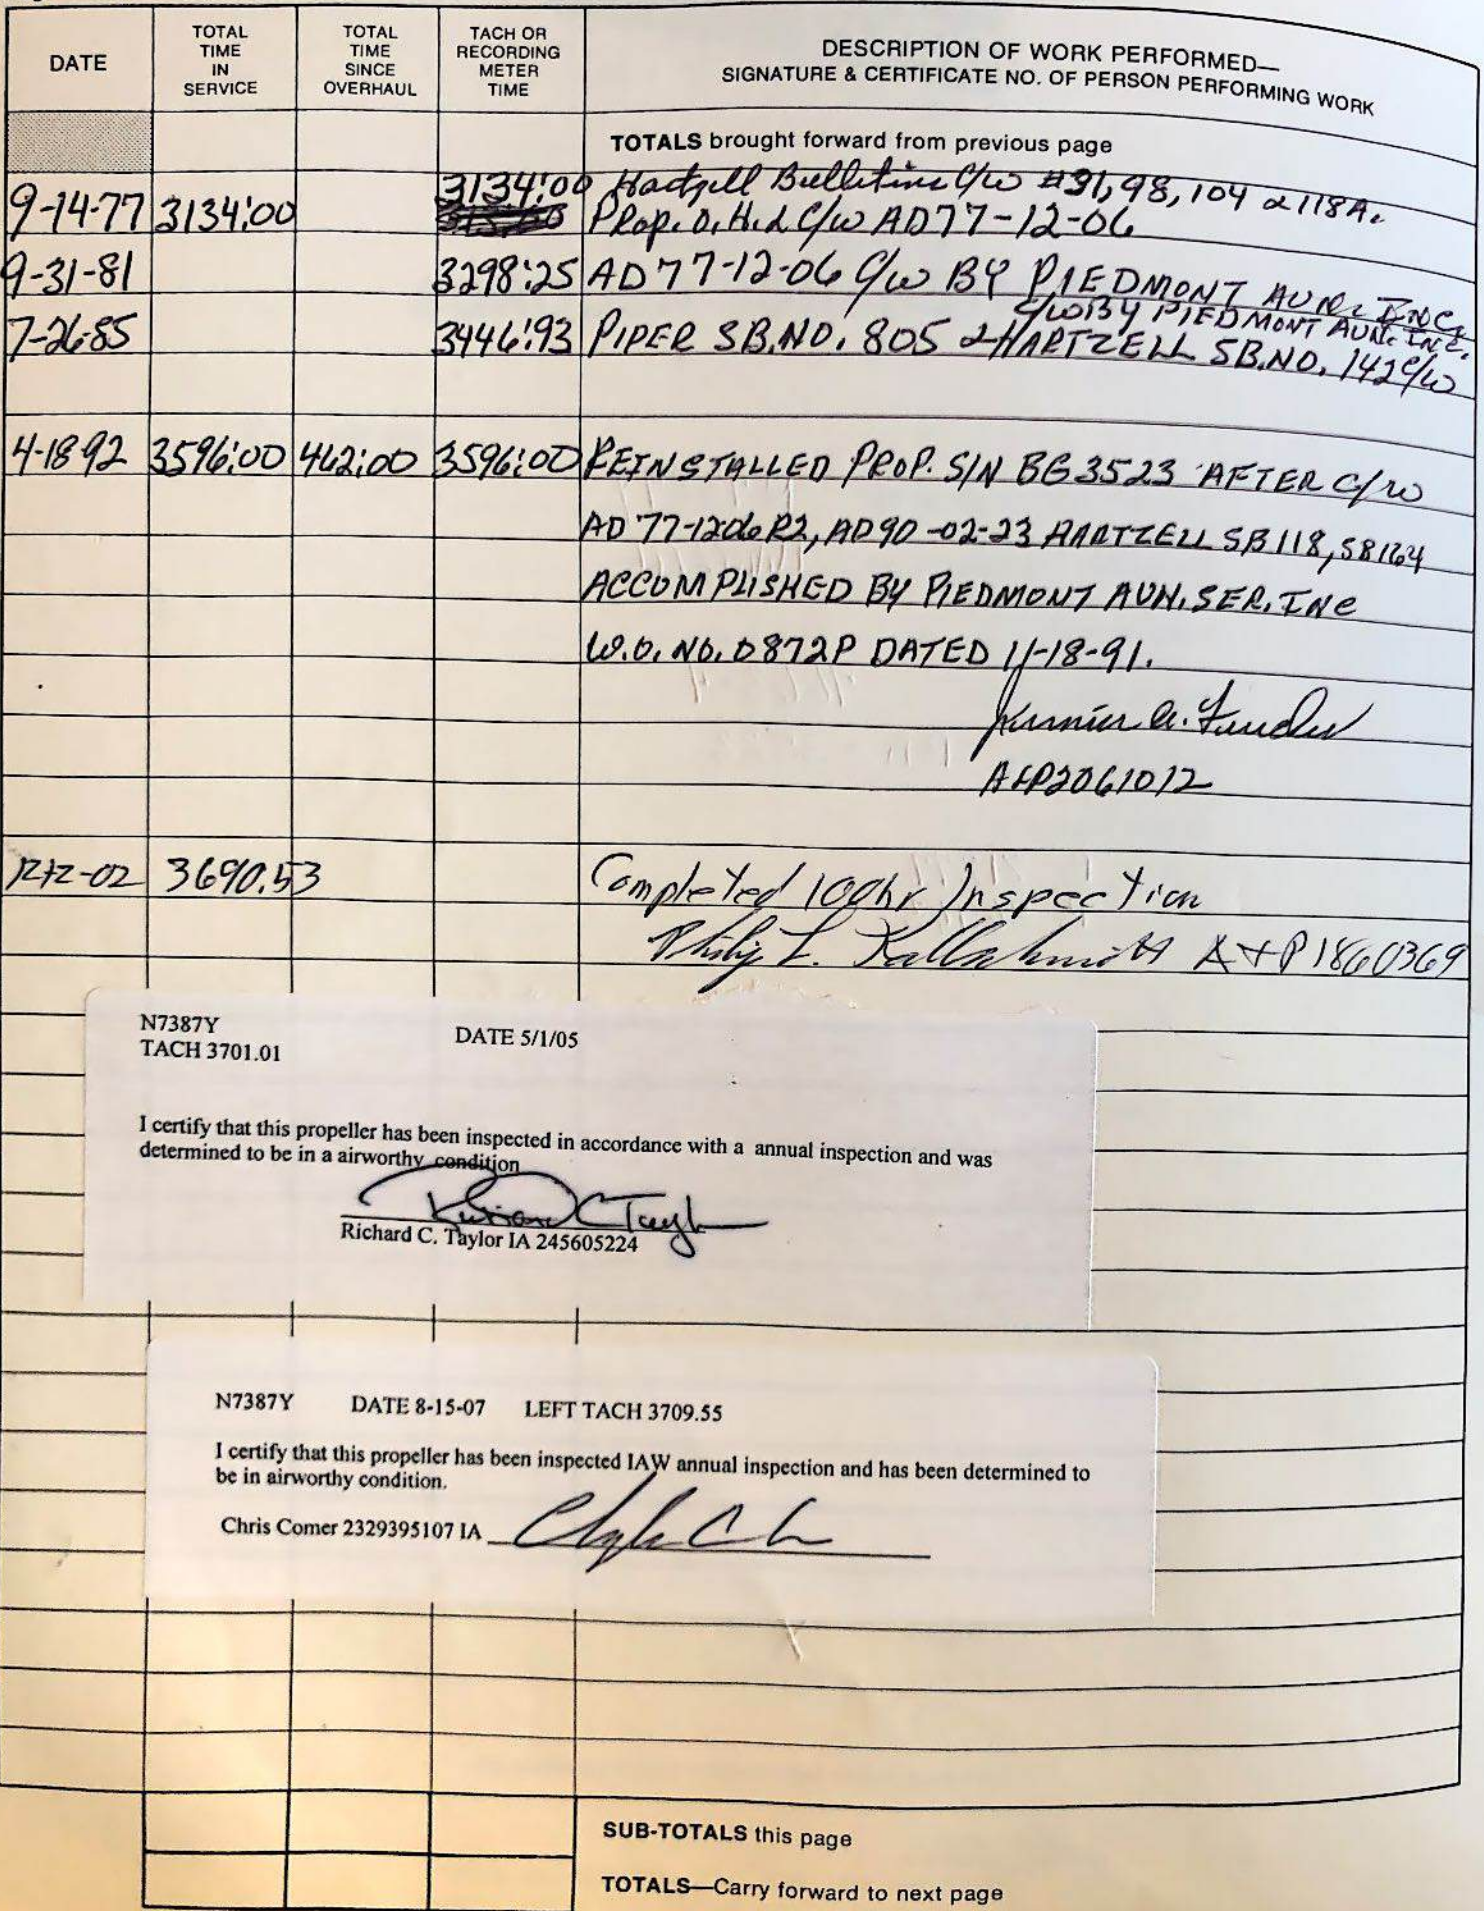 DATE
TOTAL TIME IN SERVICE
TOTAL TIME SINCE OVERHAUL
TACH OR RECORDING METER TIME
DESCRIPTION OF WORK PERFORMED—
SIGNATURE & CERTIFICATE NO. OF PERSON PERFORMING WORK
TOTALS brought forward from previous page
3134:00 Hartzell Bulletins C/W #91, 98, 104 & 118A.
9-14-77 3134:00 Prop. O.H. & C/W AD77-12-06
9-31-81 3298:25 AD 77-12-06 C/W BY PIEDMONT AVN. INC.
C/W BY PIEDMONT AVN. INC.
7-26-85 3446:93 PIPER SB.NO. 805 & HARTZELL SB.NO. 142 C/W
4-18 92 3596:00 462:00 3596:00 REINSTALLED PROP. S/N BG3523 AFTER C/W
AD 77-1206 R2, AD 90-02-23 HARTZELL SB 118, SB164
ACCOMPLISHED BY PIEDMONT AVN. SER. INC
W.O. NO. D872P DATED 11-18-91.
A&P2061012
3690.53 Completed 100hr Inspection
Philip L. A+P 1860369
N7387Y DATE 5/1/05
TACH 3701.01
I certify that this propeller has been inspected in accordance with a annual inspection and was
determined to be in a airworthy condition
Richard C. Taylor IA 245605224
N7387Y DATE 8-15-07 LEFT TACH 3709.55
I certify that this propeller has been inspected IAW annual inspection and has been determined to
be in airworthy condition.
Chris Comer 2329395107 IA
SUB-TOTALS this page
TOTALS—Carry forward to next page